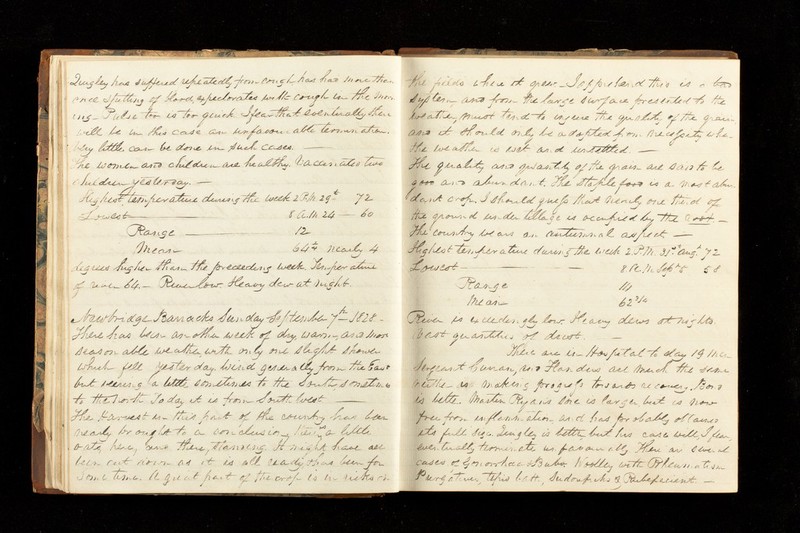 Quigley has suffered repeatedly from cough has had more than
once spitting of blood, expectorates with cough in the morn
ing - Pulse too is too quick I fear that eventually there
will be in this case an unfavourable termination.
Very little can be done in such cases. —
The women and children are healthy. Vaccinated two
children yesterday. —
Highest temperature during the week 2 P.M. 29th 72
Lowest 8 A.M. 24 — 60
Range — 12
Mean 64 nearly 4
degrees higher than the preceding week. Temperature
of river 64 - River low. Heavy dew at night
Newbridge Barracks Sunday September 7th 1828 -
There has been another week of dry warm, and most
seasonable weather with only one slight shower
which fell yesterday. Wind generally from the East
but veering a little sometimes to the South sometimes
to the north. Today it is from South West —
The Harvest in this part of the country has been
nearly brought to a conclusion, a little
oats, here, and there, standing. It might have all
been cut down as it is all ready & has been for
some time. A great part of the crop is in ricks on
the fields where it grew - I apprehend this is a bad
system and from the large surface presented to the
weather, must tend to injure the quality of the grain
and it should only be adopted from necessity when
the weather is wet and unsettled —
The quality and quantity of the grain are said to be
good and abundant. The staple food is a most abun
dant crop, I should guess that nearly one third of
the ground under tillage is occupied by the root -
The country wears an autumnal aspect —
Highest temperature during the week 2 P.M. 31st Augt 72
Lowest — 8 A.M. Septr 5 58
Range 14
Mean 62
River is exceedingly low. Heavy dews at nights
vast quantities of dust. —
There are in Hospital to day 19 men
Sergeant Curran, and Flanders are much the same
making progress towards recovery.
is better. Martin Ryan's sore is large but is now
free from inflammation, and has probably obtained
its full size - Quigley is better, but his case will I fear,
eventually terminate unfavourably. There are several
cases of Gonorrhoea & Bubo. Woolley with Rheumatism
Purgatives, tepid bath, Sudorifics & Rubefacient —